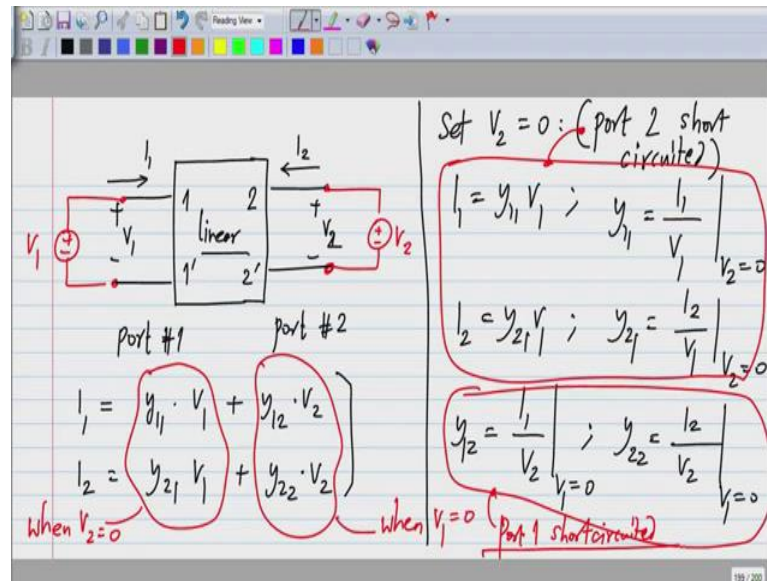 Reading View
B I
I₁
I₂
1 2
+ +
V₁ + V₁ linear V₂ + V₂
- -
1' 2'
port #1 port #2
I₁ = y₁₁ · V₁ + y₁₂ · V₂
I₂ = y₂₁ V₁ + y₂₂ · V₂
when V₂=0 when V₁=0
Set V₂ = 0 : (port 2 short
circuited)
I₁ = y₁₁ V₁ ; y₁₁ = I₁ / V₁ | V₂=0
I₂ = y₂₁ V₁ ; y₂₁ = I₂ / V₁ | V₂=0
y₁₂ = I₁ / V₂ | V₁=0 ; y₂₂ = I₂ / V₂ | V₁=0
Port 1 shortcircuited
199 / 200